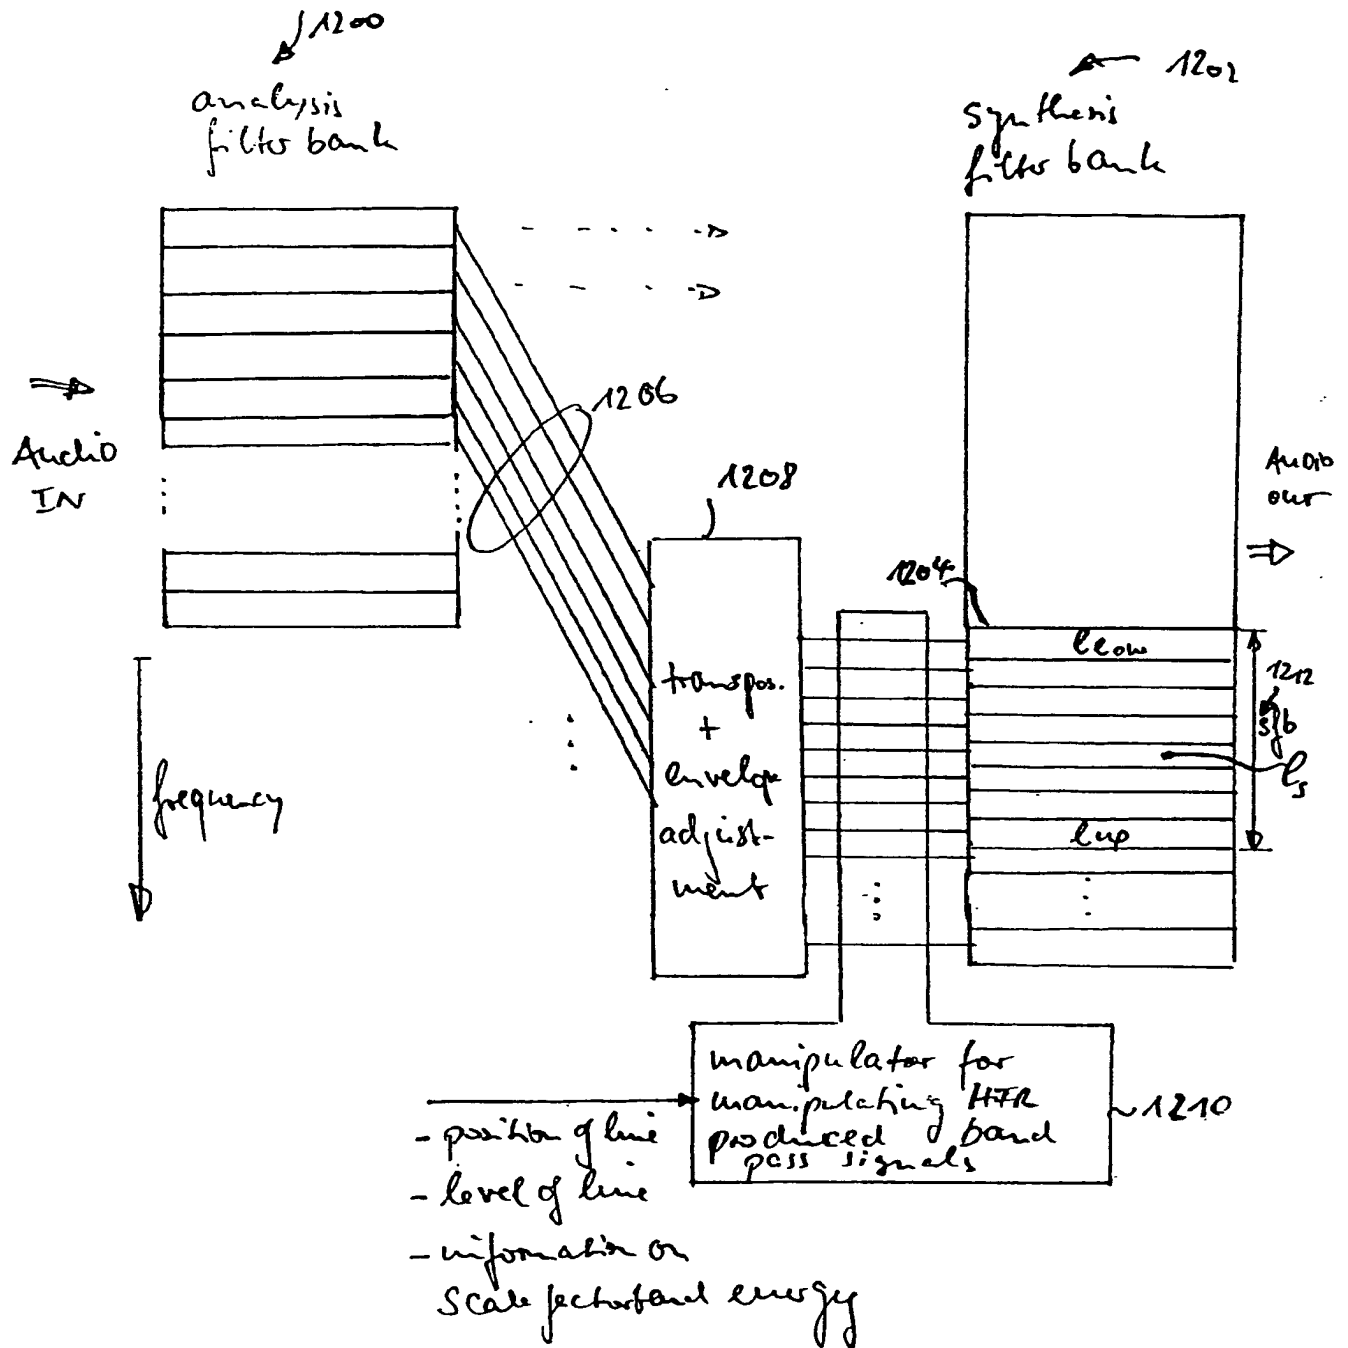 1200
analysis
filter bank
1202
synthesis
filter bank
Audio
IN
1206
1208
1204
Audio
out
llow
1212
sfb
ls
lup
transpos.
+
envelope
adjust-
ment
frequency
manipulator for
manipulating HFR
produced band
pass signals
1210
- position of line
- level of line
- information on
scale factorband energy